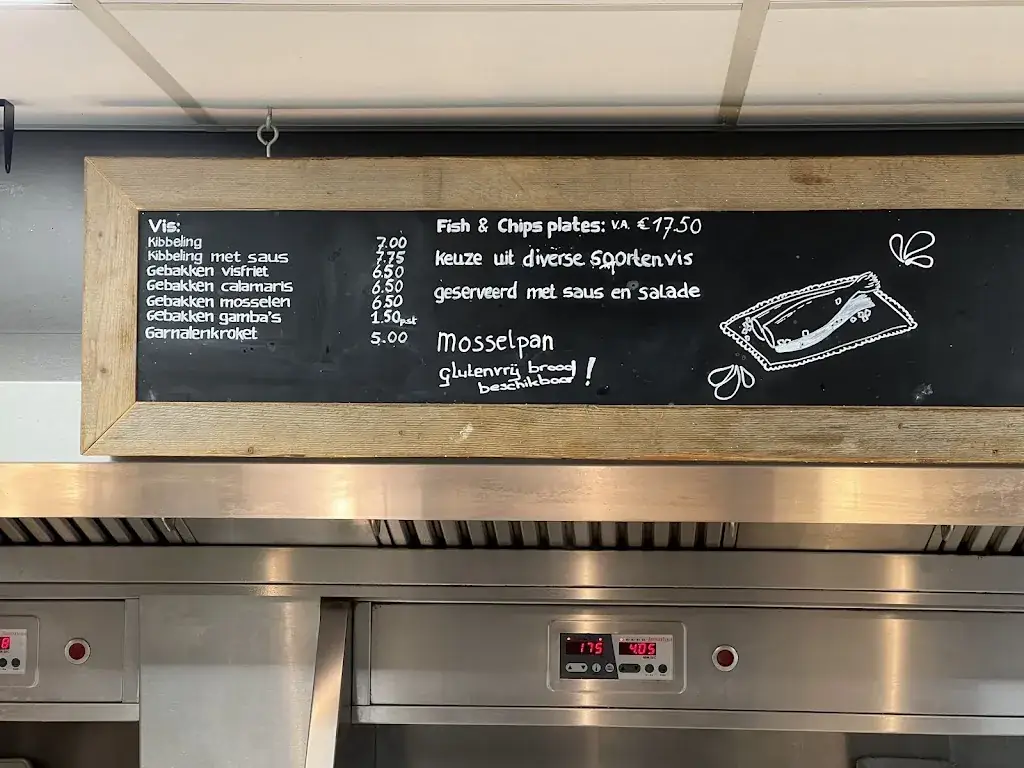 Vis:
Kibbeling 7.00
Kibbeling met saus 7.75
Gebakken visfriet 6.50
Gebakken calamaris 6.50
Gebakken mosselen 6.50
Gebakken gamba's 1.50 p.st
Garnalenkroket 5.00
Fish & Chips plates: V.A. €17.50
keuze uit diverse soorten vis
geserveerd met saus en salade
mosselpan
glutenvrij brood
beschikbaar!
175 4.05